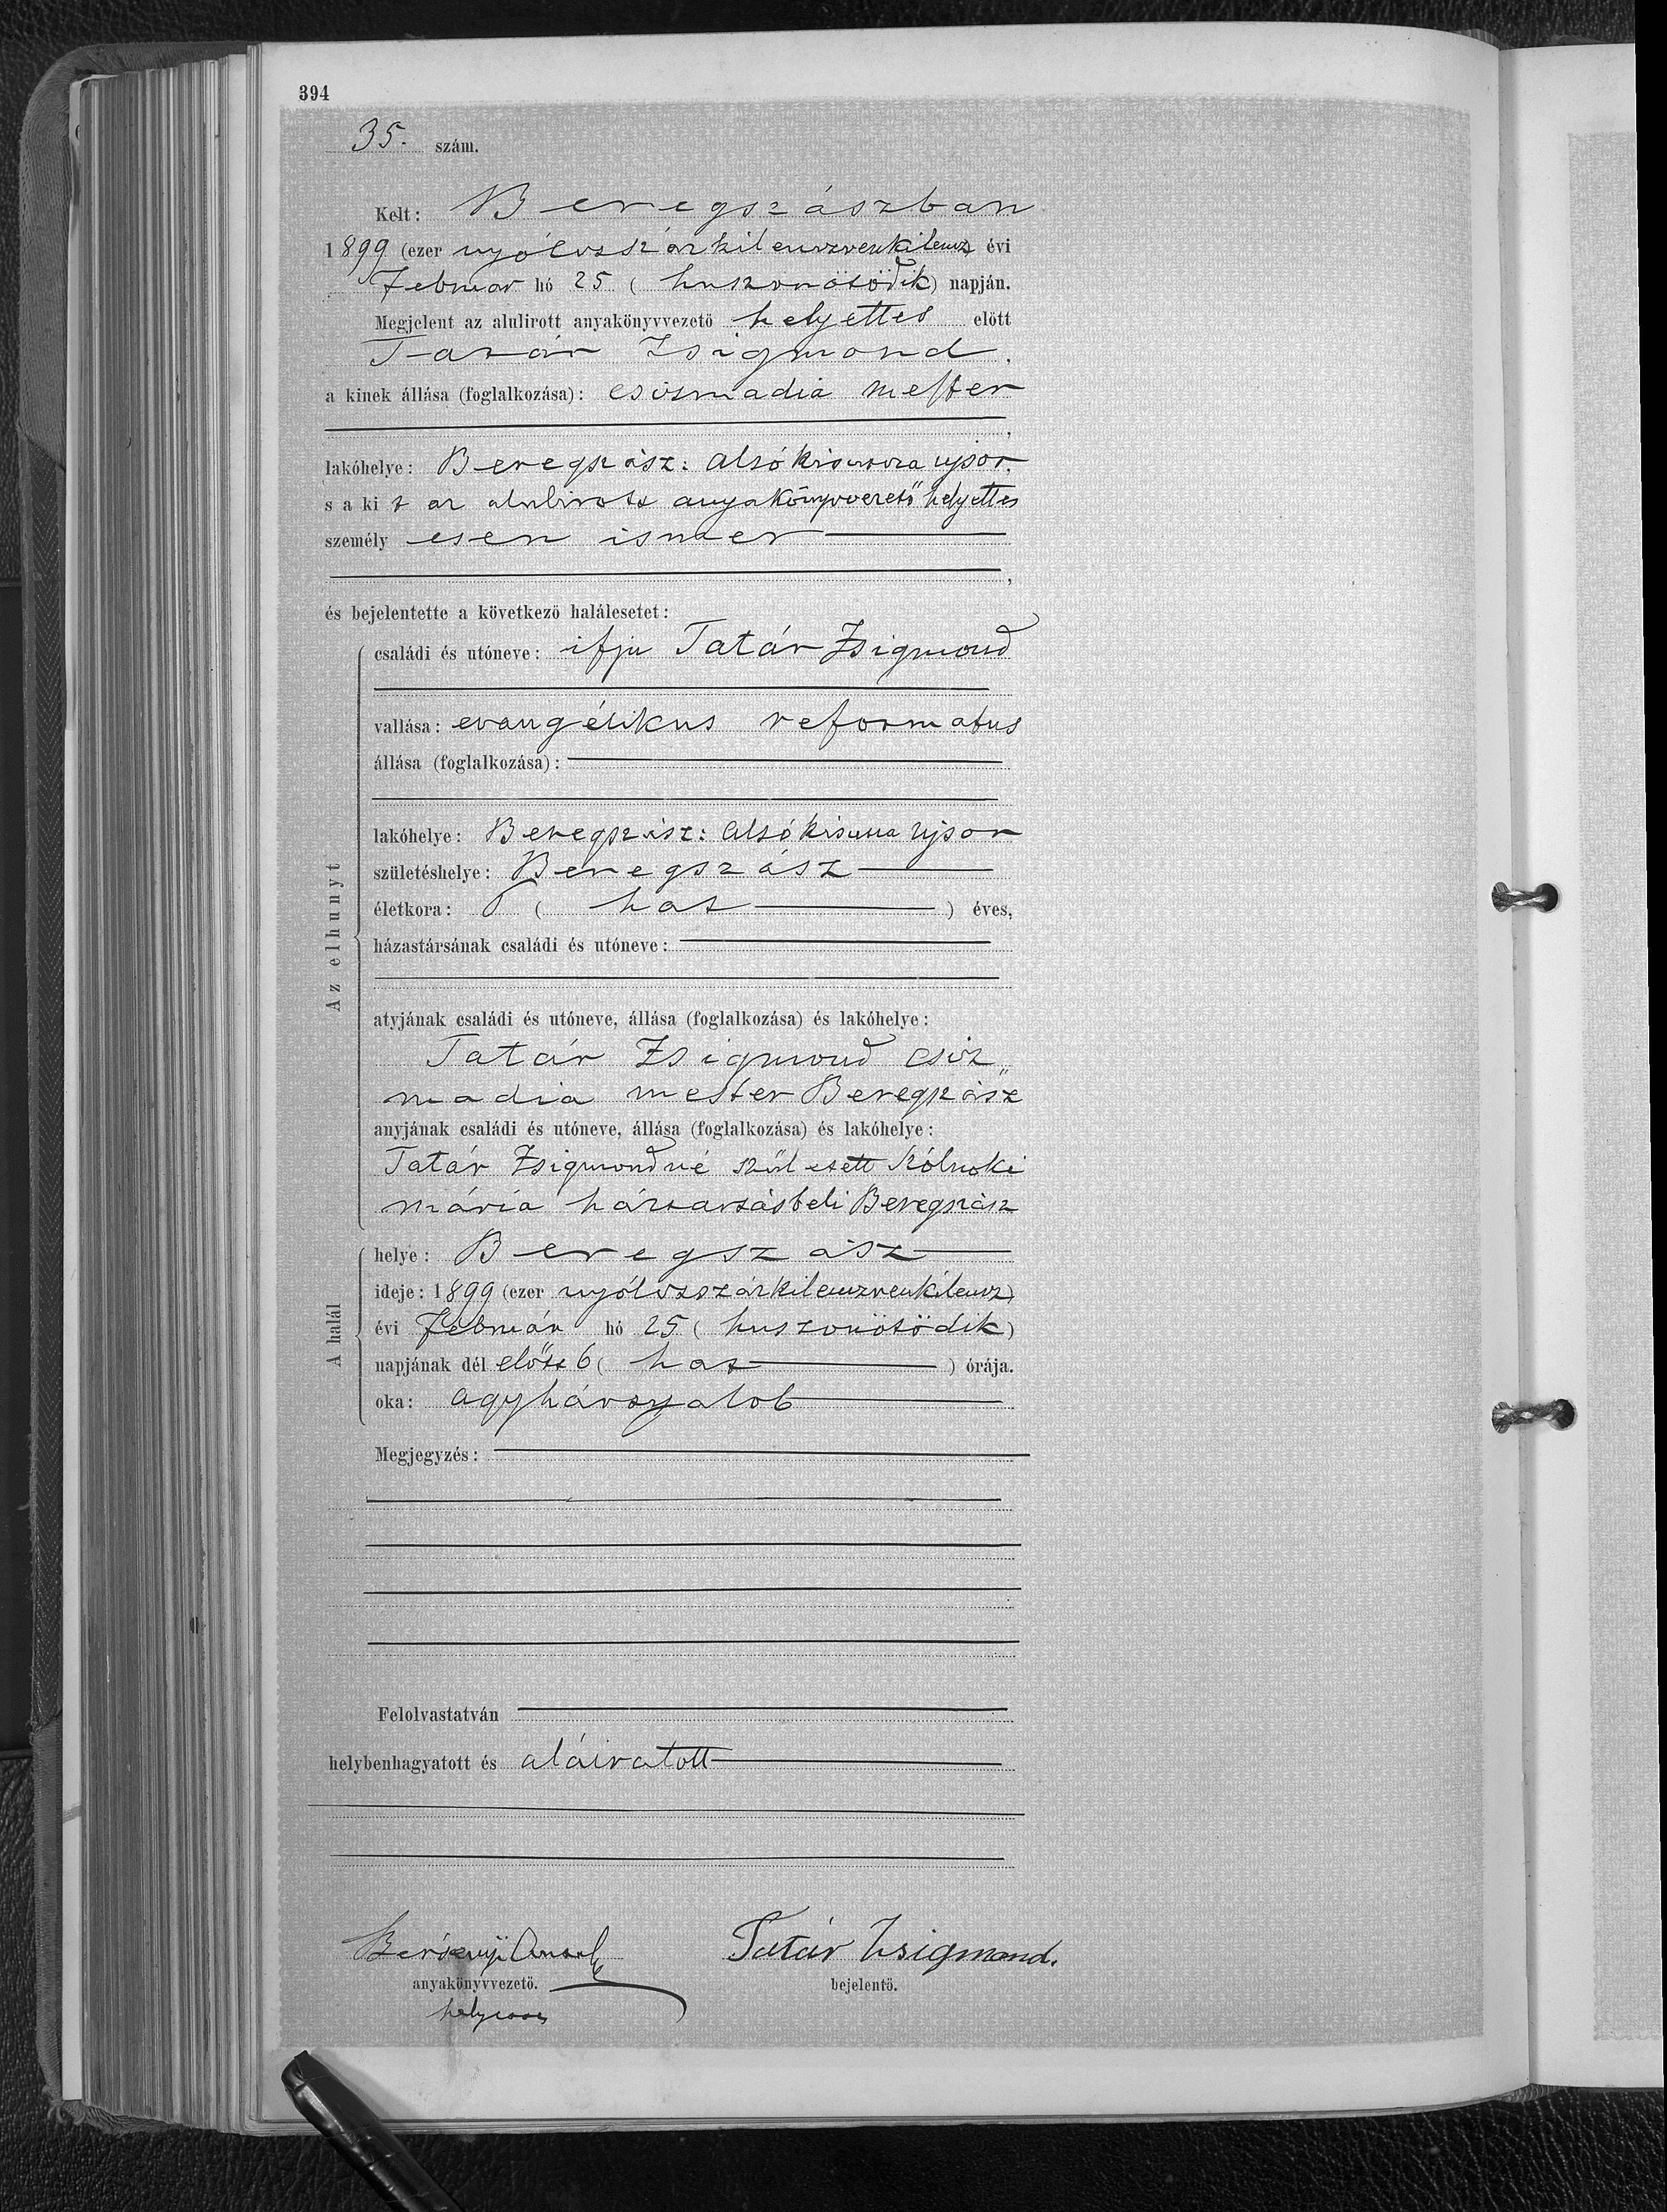 394
35. szám.
Kelt: Beregszászban
1899 (ezer nyólcsszázkilenczvenkilencz) évi
Február hó 25 (huszonötödik) napján.
Megjelent az alulirott anyakönyvvezető helyettes előtt
Tatár Zsigmond,
a kinek állása (foglalkozása): csizmadia mester
,
lakóhelye: Beregszász: alsó ujsor,
s a ki t az alulirott anyakönyvvezető helyettes
személy esen ismer
,
és bejelentette a következő halálesetet:
Az elhunyt
családi és utóneve: ifju Tatár Zsigmond
vallása: evangélikus reformatus
állása (foglalkozása):
lakóhelye: Beregszász: alsó ujsor
születéshelye: Beregszász
életkora: 6 (hat) éves,
házastársának családi és utóneve:
atyjának családi és utóneve, állása (foglalkozása) és lakóhelye:
Tatár Zsigmond csiz„
madia mester Beregszász
anyjának családi és utóneve, állása (foglalkozása) és lakóhelye:
Tatár Zsigmondné született Szólnoki
mária háztartásbeli Beregszász
A halál
helye: Beregszász
ideje: 1899 (ezer nyólczszázkilenczvenkilencz)
évi Február hó 25 (huszonötödik)
napjának dél előtt 6 (hat) órája.
oka: agyhártyalob
Megjegyzés:
Felolvastatván
helybenhagyatott és aláiratott
Tatár Zsigmond.
anyakönyvvezető. bejelentő.
helyettes